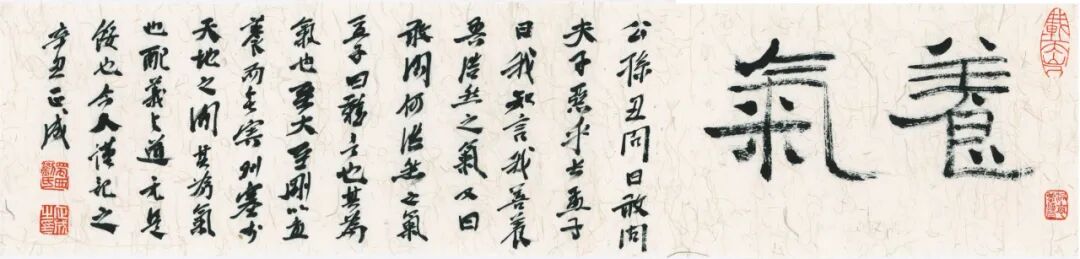 養氣
公孫丑問曰敢問
夫子惡乎長孟子
曰我知言我善養
吾浩然之氣又曰
敢問何浩然之氣
孟子曰難言也其為
氣也至大至剛以直
養而无害則塞於
天地之間其為氣
也配義与道无是
餒也人謹記之
辛丑正成